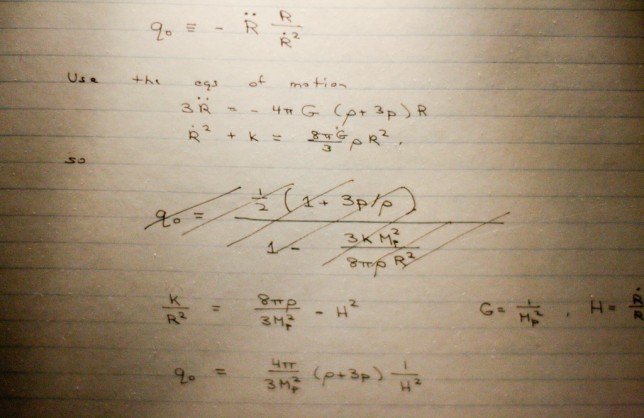 q₀ ≡ - R̈ R/Ṙ²
Use the eqs of motion
3R̈ = - 4π G (ρ + 3p) R
Ṙ² + k = 8πG/3 ρ R² .
so
q₀ = ½ (1 + 3p/ρ) / (1 - 3kMₚ²/8πρR²)
k/R² = 8πρ/3Mₚ² - H² G = 1/Mₚ² , H = Ṙ/R
q₀ = 4π/3Mₚ² (ρ + 3p) 1/H²